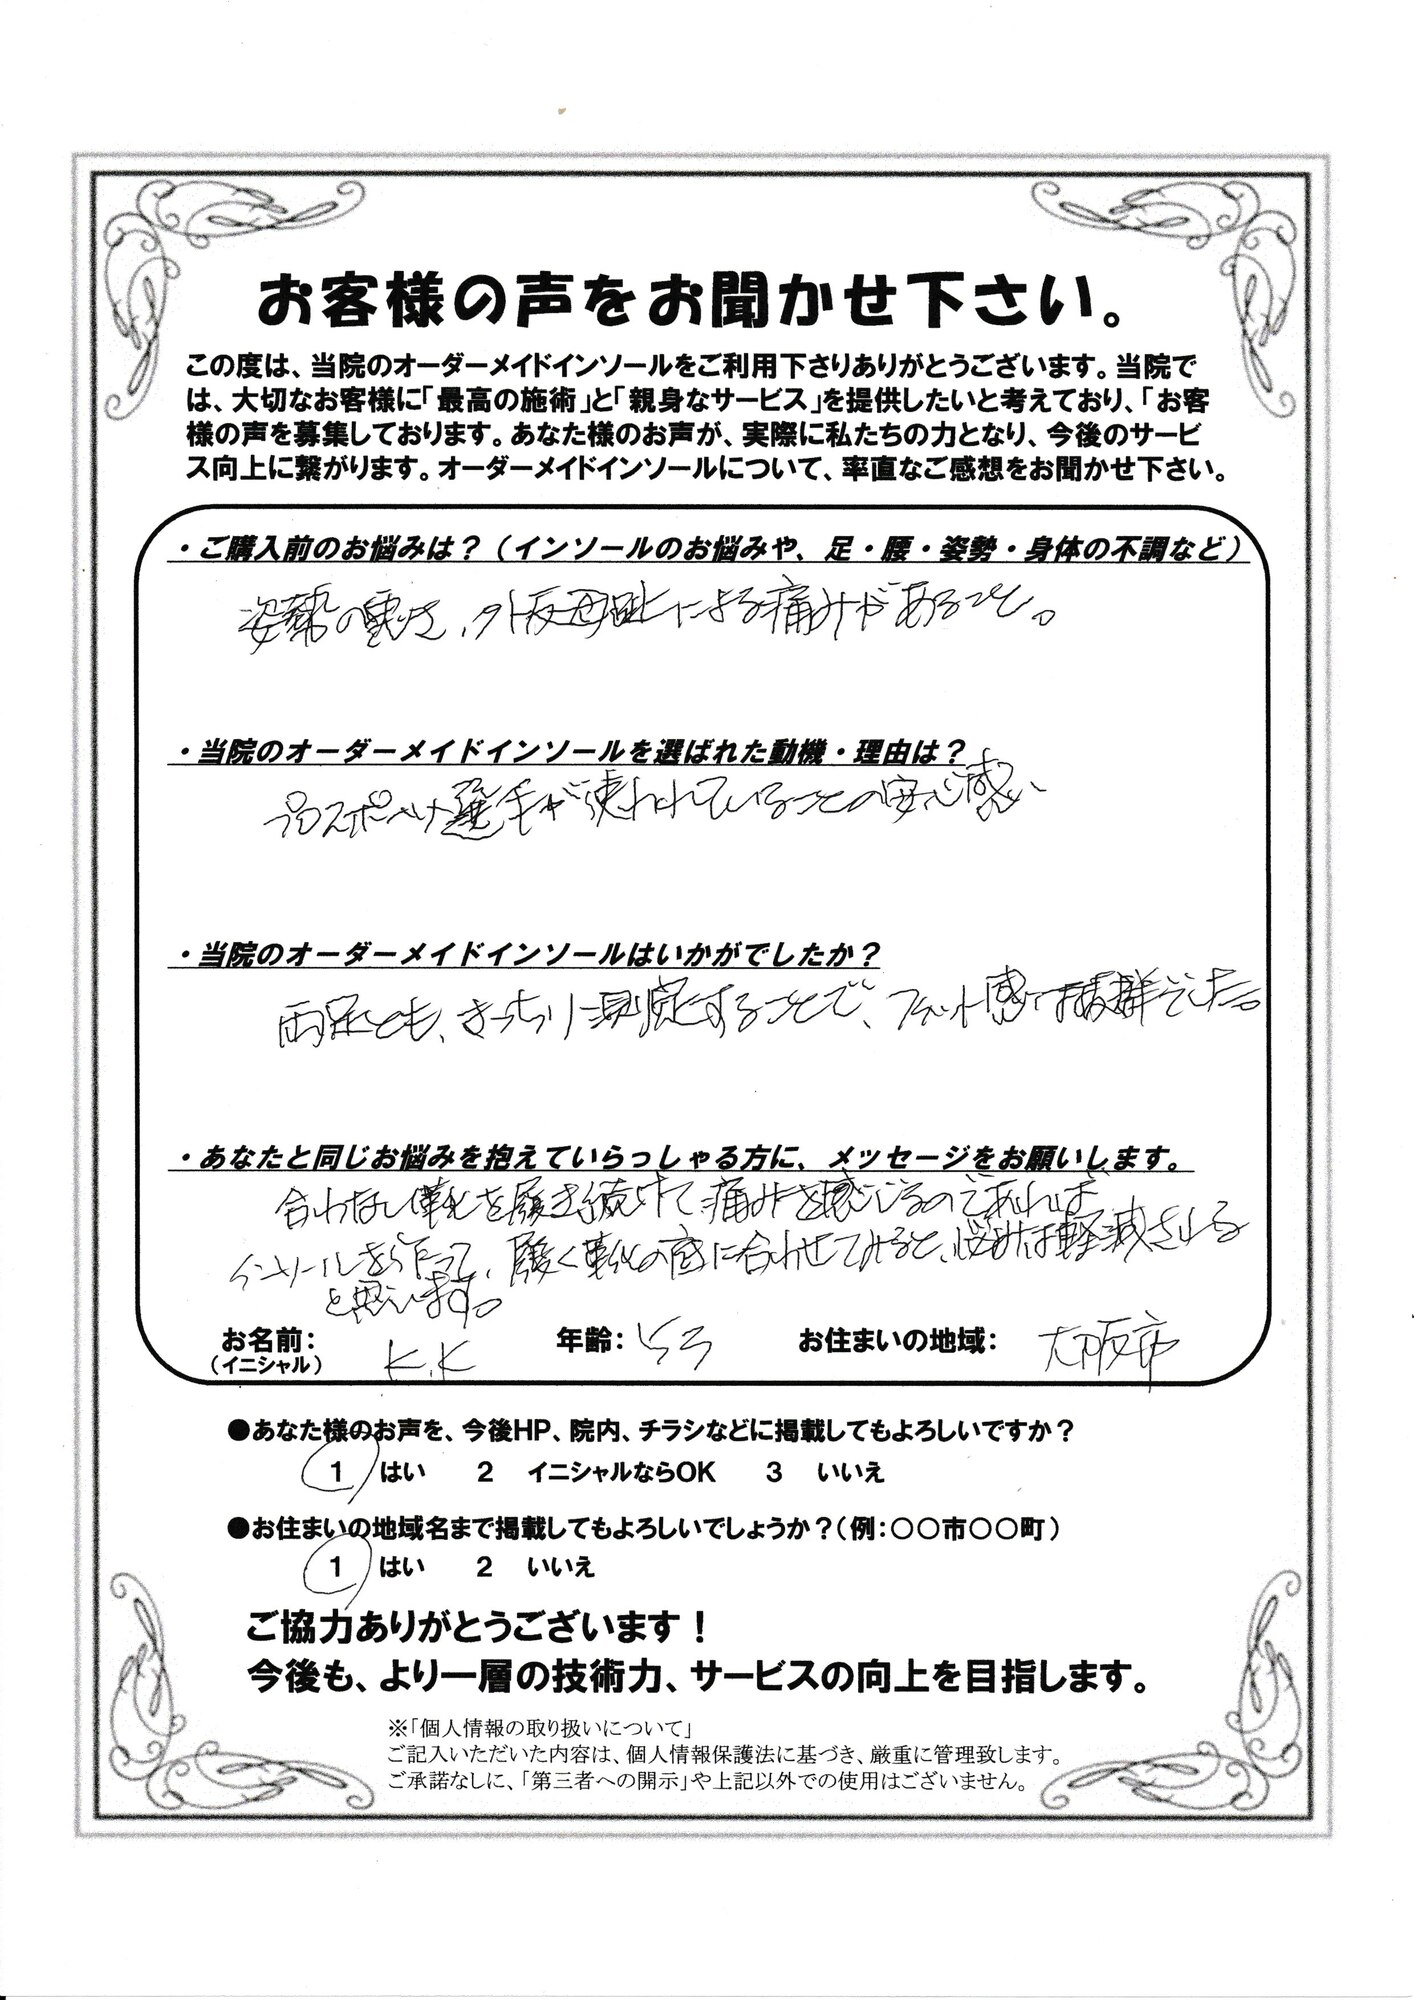 お客様の声をお聞かせ下さい。
この度は、当院のオーダーメイドインソールをご利用下さりありがとうございます。当院で
は、大切なお客様に「最高の施術」と「親身なサービス」を提供したいと考えており、「お客
様の声を募集しております。あなた様のお声が、実際に私たちの力となり、今後のサービ
ス向上に繋がります。オーダーメイドインソールについて、率直なご感想をお聞かせ下さい。
・ご購入前のお悩みは？（インソールのお悩みや、足・腰・姿勢・身体の不調など）
姿勢の悪さ、外反母趾による痛みがあること。
・当院のオーダーメイドインソールを選ばれた動機・理由は？
プロスポーツ選手が使われていることの安心感
・当院のオーダーメイドインソールはいかがでしたか？
両足とも、きっちり測定することで、フィット感は抜群でした。
・あなたと同じお悩みを抱えていらっしゃる方に、メッセージをお願いします。
合わない靴を履き続けて痛みを感じるのであれば
インソールを作って、履く靴の底に合わせてみると、悩みは軽減される
と思います。
お名前： K.K 年齢： 53 お住まいの地域： 大阪市
（イニシャル）
●あなた様のお声を、今後HP、院内、チラシなどに掲載してもよろしいですか？
1 はい 2 イニシャルならOK 3 いいえ
●お住まいの地域名まで掲載してもよろしいでしょうか？（例：〇〇市〇〇町）
1 はい 2 いいえ
ご協力ありがとうございます！
今後も、より一層の技術力、サービスの向上を目指します。
※「個人情報の取り扱いについて」
ご記入いただいた内容は、個人情報保護法に基づき、厳重に管理致します。
ご承諾なしに、「第三者への開示」や上記以外での使用はございません。